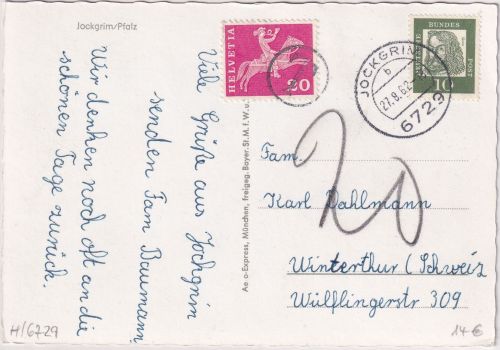 Jockgrim/Pfalz
Viele Grüße aus Jockgrim
senden Fam Baumann
Wir denken noch oft an die
schönen Tage zurück.
Ae o-Express, München, freigeg. Bayer. St. M. f. W. u.
HELVETIA
20
DEUTSCHE BUNDESPOST
10
JOCKGRIM
b
27.8.62
6729
20
Fam.
Karl Dahlmann
Winterthur (Schweiz
Wülflingerstr 309
H/6729
14€